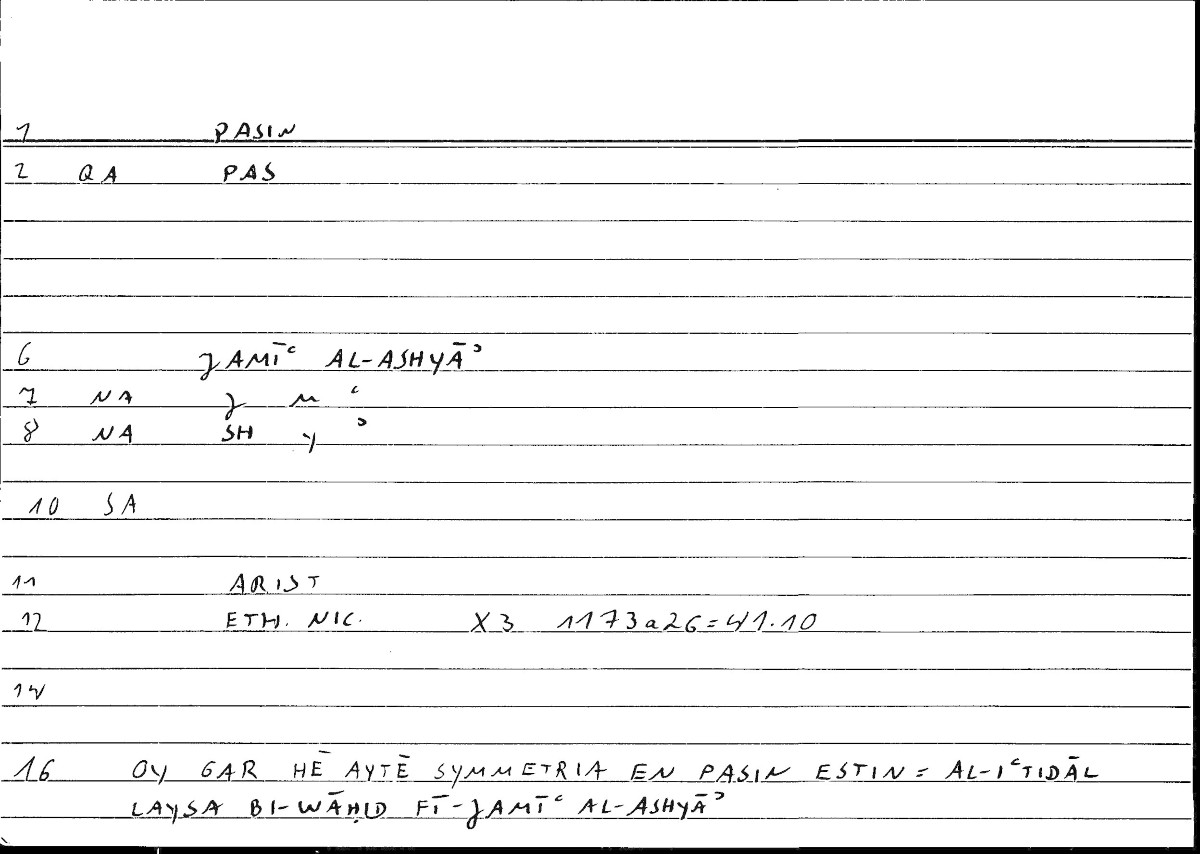 1 PASIN
2 QA PAS
6 JAMĪʿ AL-ASHYĀʾ
7 NA J M ʿ
8 NA SH Y ʾ
10 SA
11 ARIST
12 ETH. NIC. X3 1173a26=41.10
14
16 OY GAR HĒ AYTĒ SYMMETRIA EN PASIN ESTIN = AL-IʿTIDĀL
LAYSA BI-WĀḤID FĪ-JAMĪʿ AL-ASHYĀʾ